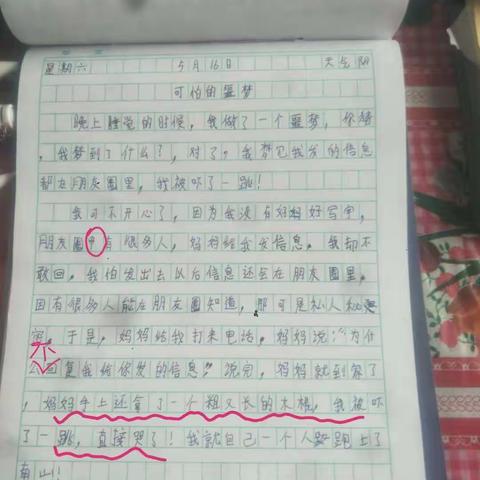 星期六 5月16日 天气阴
可怕的噩梦
晚上睡觉的时候,我做了一个噩梦,你猜
,我梦到了什么?,对了,我梦见我发的信息
都在朋友圈里,我被吓了一跳!
我可不开心了,因为我没有好好写字,
朋友圈中有很多人,妈妈给我发信息,我却不
敢回,我怕发出去以后信息还会在朋友圈里。
因有很多人能在朋友圈知道,那可是私人秘
密,于是,妈妈给我打来电话。妈妈说:“为什
么不回复我给你发的信息”说完,妈妈就到家了
,妈妈手上还拿了一个粗又长的木棍,我被吓
了一跳,直接哭了!我就自己一个人跑上了
南山!